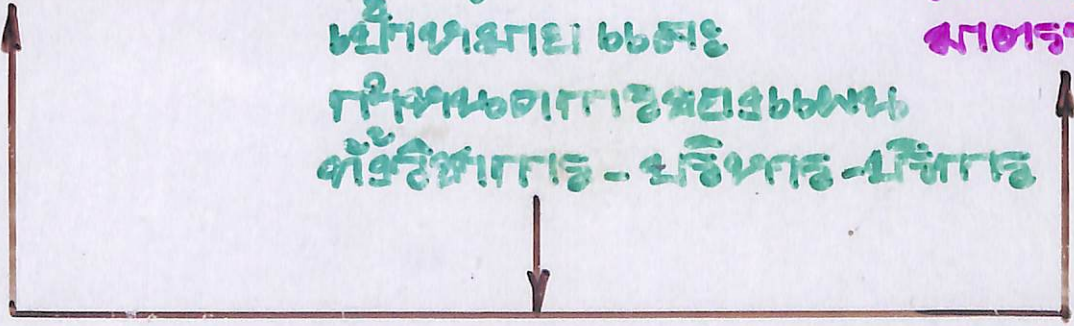 เป้าหมาย และ
กำหนดการของแผน
ทั้งวิชาการ - บริหาร - บริการ